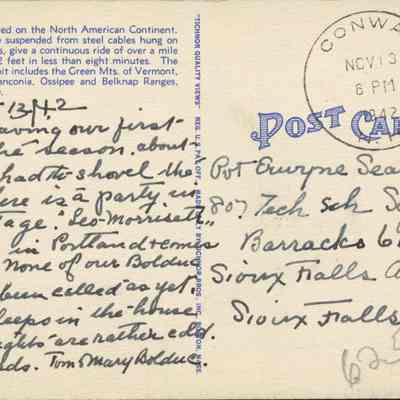 red on the North American Continent.
e suspended from steel cables hung on
s, give a continuous ride of over a mile
2 feet in less than eight minutes. The
bit includes the Green Mts. of Vermont,
anconia, Ossipee and Belknap Ranges,
13, 42
aving our first
the season. about
had to shovel the
ere is a party in
tage. "Leo Morrisett"
in Portland + comes
none of our Bolduc
been called as yet.
leeps in the house
ghts are rather cold.
ds. Tom & Mary Bolduc
"TICHNOR QUALITY VIEWS" REG. U. S. PAT. OFF. MADE ONLY BY TICHNOR BROS., INC., BOSTON, MASS.
CONWA
NOV 13
6 PM
1942
POST CA
Pvt Erwyne Sea
807 Tech Sch S
Barracks 6
Sioux Falls A
Sioux Falls